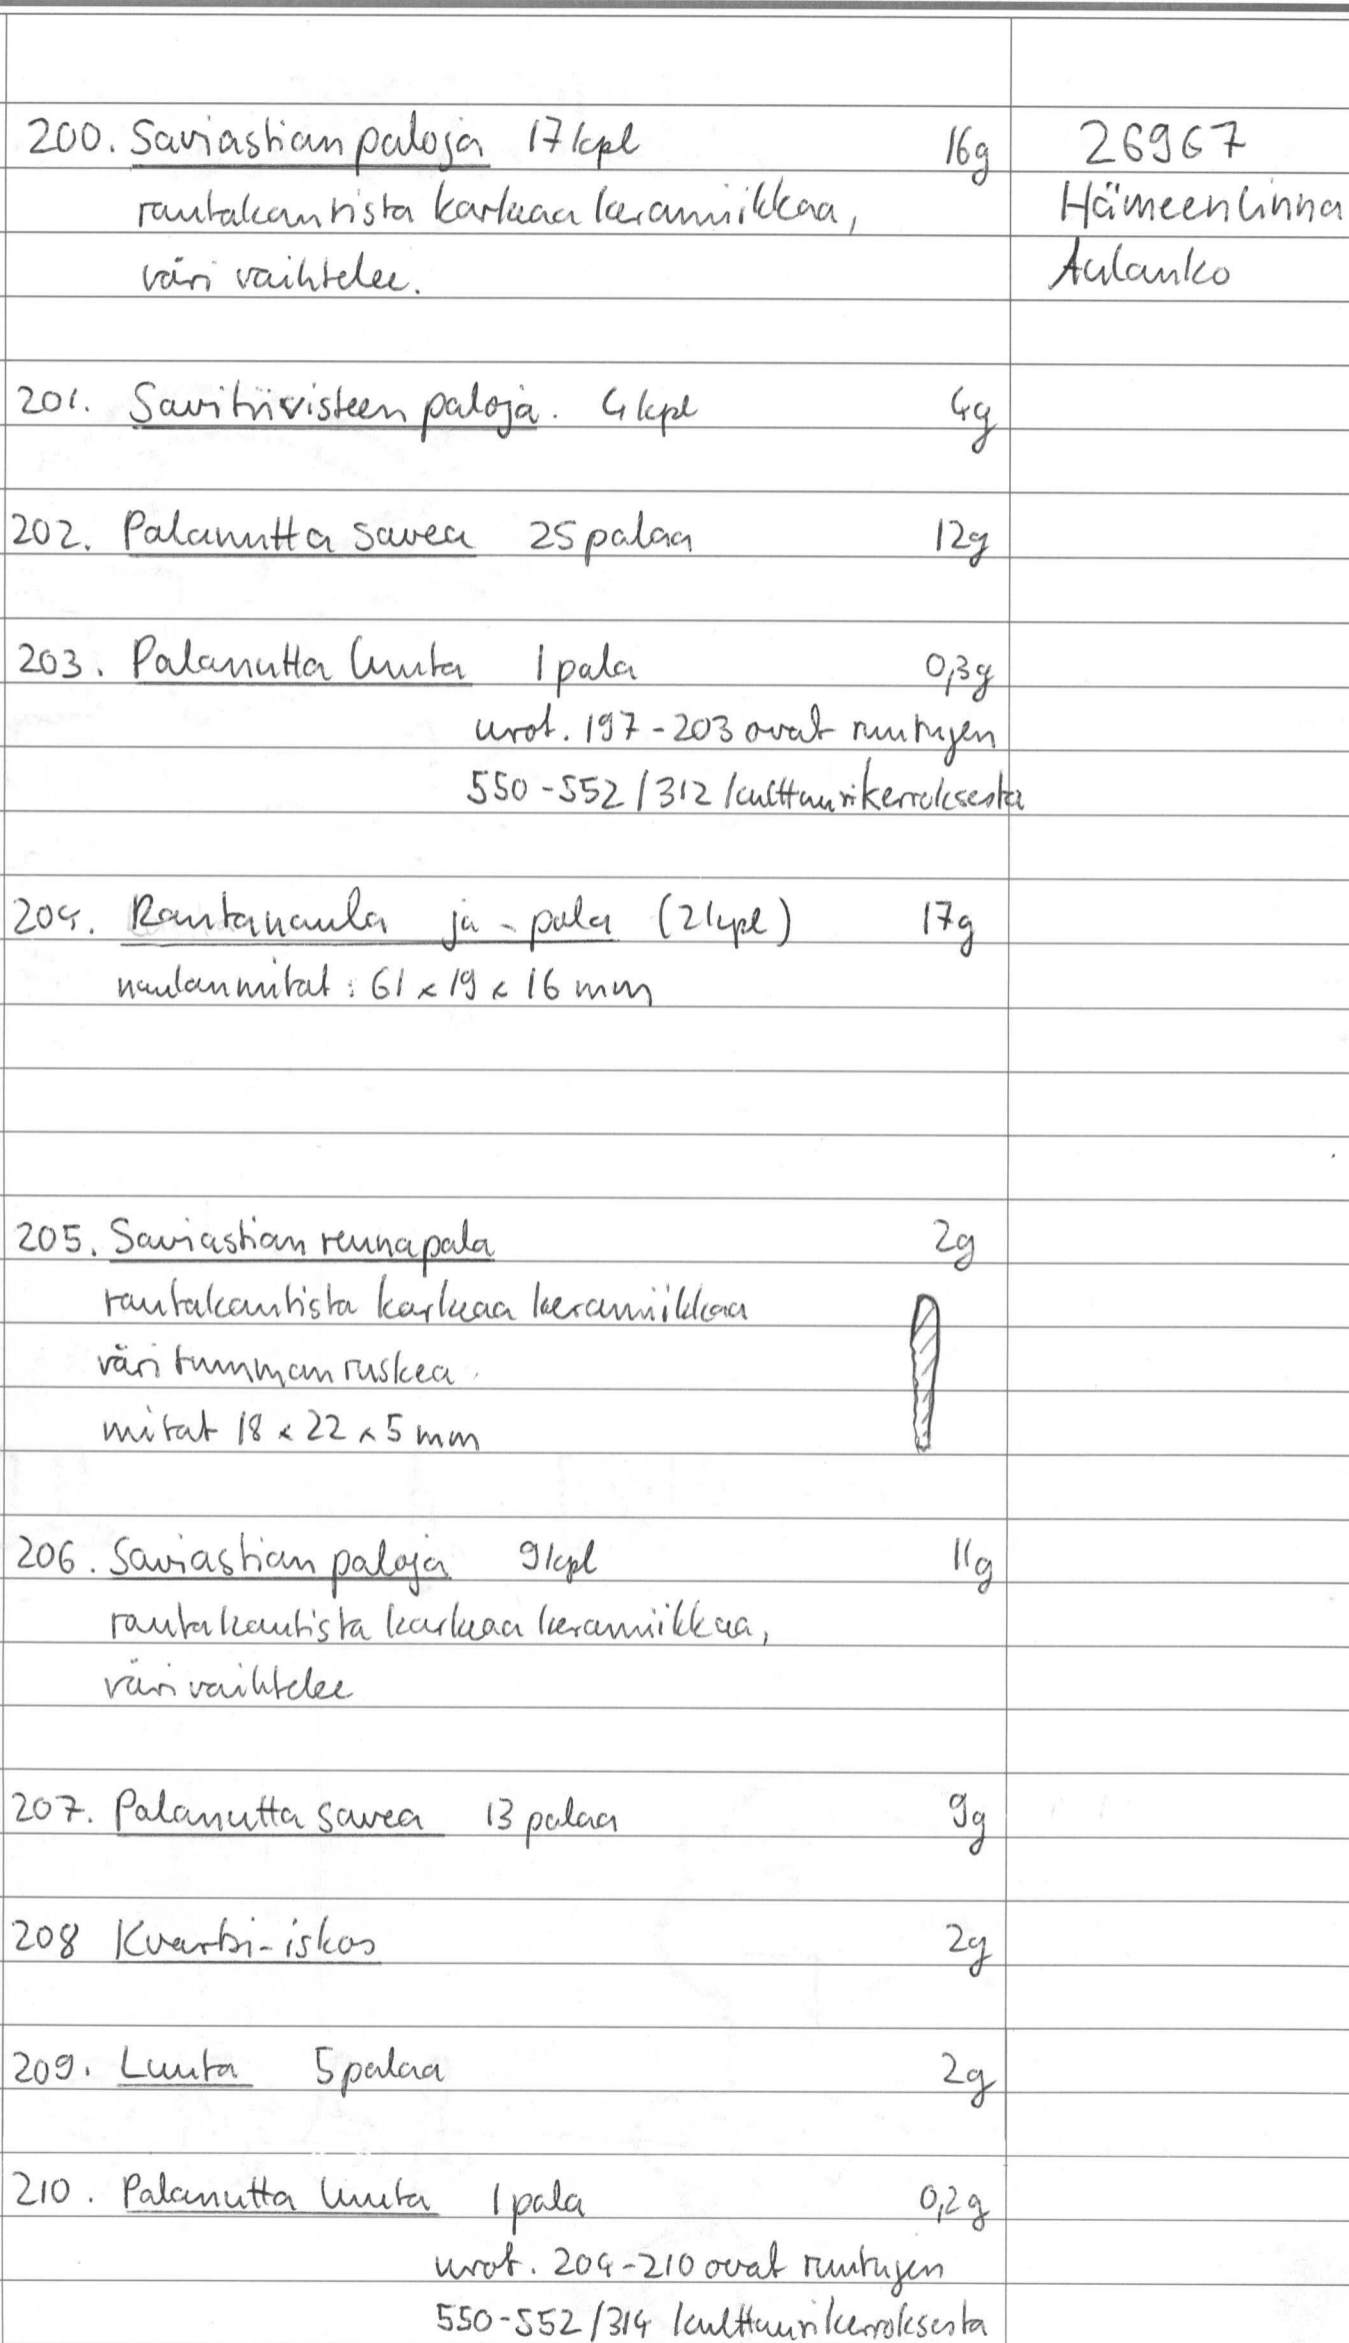 200. Saviastian paloja 17 kpl 16g 26967
rautakautista karkeaa keramiikkaa, Hämeenlinna
väri vaihtelee. Aulanko
201. Savitiivisteen paloja. 4 kpl 4g
202. Palanutta savea 25 palaa 12g
203. Palanutta luuta 1 pala 0,3g
nrot. 197-203 ovat ruutujen
550-552/312 kulttuurikerroksesta
204. Rautanaula ja -pala (2 kpl) 17g
naulan mitat: 61 x 19 x 16 mm
205. Saviastian reunapala 2g
rautakautista karkeaa keramiikkaa
väri tummanruskea.
mitat 18 x 22 x 5 mm
206. Saviastian paloja 9 kpl 11g
rautakautista karkeaa keramiikkaa,
väri vaihtelee
207. Palanutta savea 13 palaa 9g
208 Kvartsi-iskos 2g
209. Luuta 5 palaa 2g
210. Palanutta luuta 1 pala 0,2g
nrot. 204-210 ovat ruutujen
550-552/314 kulttuurikerroksesta